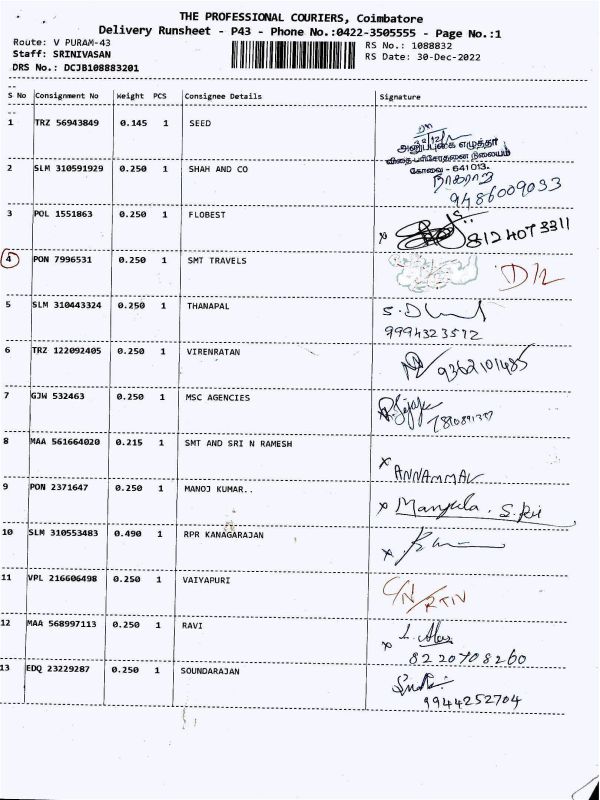 THE PROFESSIONAL COURIERS, Coimbatore
Delivery Runsheet - P43 - Phone No.:0422-3505555 - Page No.:1
Route: V PURAM-43
RS No.: 1088832
Staff: SRINIVASAN
RS Date: 30-Dec-2022
DRS No.: DCJB108883201
S No Consignment No Weight PCS Consignee Details Signature
1 TRZ 56943849 0.145 1 SEED
அனுப்புகை எழுத்தர்
விதை பரிசோதனை நிலையம்
கோவை - 641 013.
2 SLM 310591929 0.250 1 SHAH AND CO
நாகராஜ்
9486009033
3 POL 1551863 0.250 1 FLOBEST
x 8124073311
4 PON 7996531 0.250 1 SMT TRAVELS
5 SLM 310443324 0.250 1 THANAPAL
9994323512
6 TRZ 122092405 0.250 1 VIRENRATAN
9362101485
7 GJW 532463 0.250 1 MSC AGENCIES
8 MAA 561664020 0.215 1 SMT AND SRI N RAMESH
x ANNAMMAL
9 PON 2371647 0.250 1 MANOJ KUMAR..
x Manjula. S.
10 SLM 310553483 0.490 1 RPR KANAGARAJAN
x
11 VPL 216606498 0.250 1 VAIYAPURI
C/N/RTN
12 MAA 568997113 0.250 1 RAVI
x
8220708260
13 EDQ 23229287 0.250 1 SOUNDARAJAN
9944252704